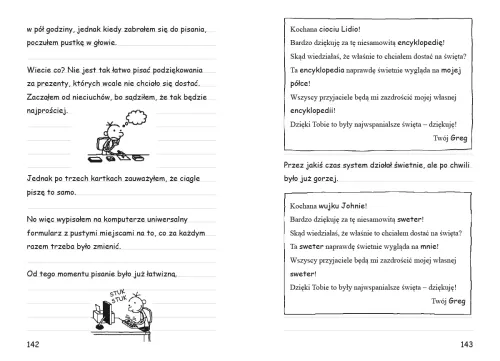 w pół godziny, jednak kiedy zabrałem się do pisania,
poczułem pustkę w głowie.
Wiecie co? Nie jest tak łatwo pisać podziękowania
za prezenty, których wcale nie chciało się dostać.
Zacząłem od nieciuchów, bo sądziłem, że tak będzie
najprościej.
Jednak po trzech kartkach zauważyłem, że ciągle
piszę to samo.
No więc wypisałem na komputerze uniwersalny
formularz z pustymi miejscami na to, co za każdym
razem trzeba było zmienić.
Od tego momentu pisanie było już łatwizną.
STUK
STUK
142
Kochana ciociu Lidio!
Bardzo dziękuję za tę niesamowitą encyklopedię!
Skąd wiedziałaś, że właśnie to chciałem dostać na święta?
Ta encyklopedia naprawdę świetnie wygląda na mojej
półce!
Wszyscy przyjaciele będą mi zazdrościć mojej własnej
encyklopedii!
Dzięki Tobie to były najwspanialsze święta – dziękuję!
Twój Greg
Przez jakiś czas system działał świetnie, ale po chwili
było już gorzej.
Kochana wujku Johnie!
Bardzo dziękuję za tę niesamowitą sweter!
Skąd wiedziałaś, że właśnie to chciałem dostać na święta?
Ta sweter naprawdę świetnie wygląda na mnie!
Wszyscy przyjaciele będą mi zazdrościć mojej własnej
sweter!
Dzięki Tobie to były najwspanialsze święta – dziękuję!
Twój Greg
143